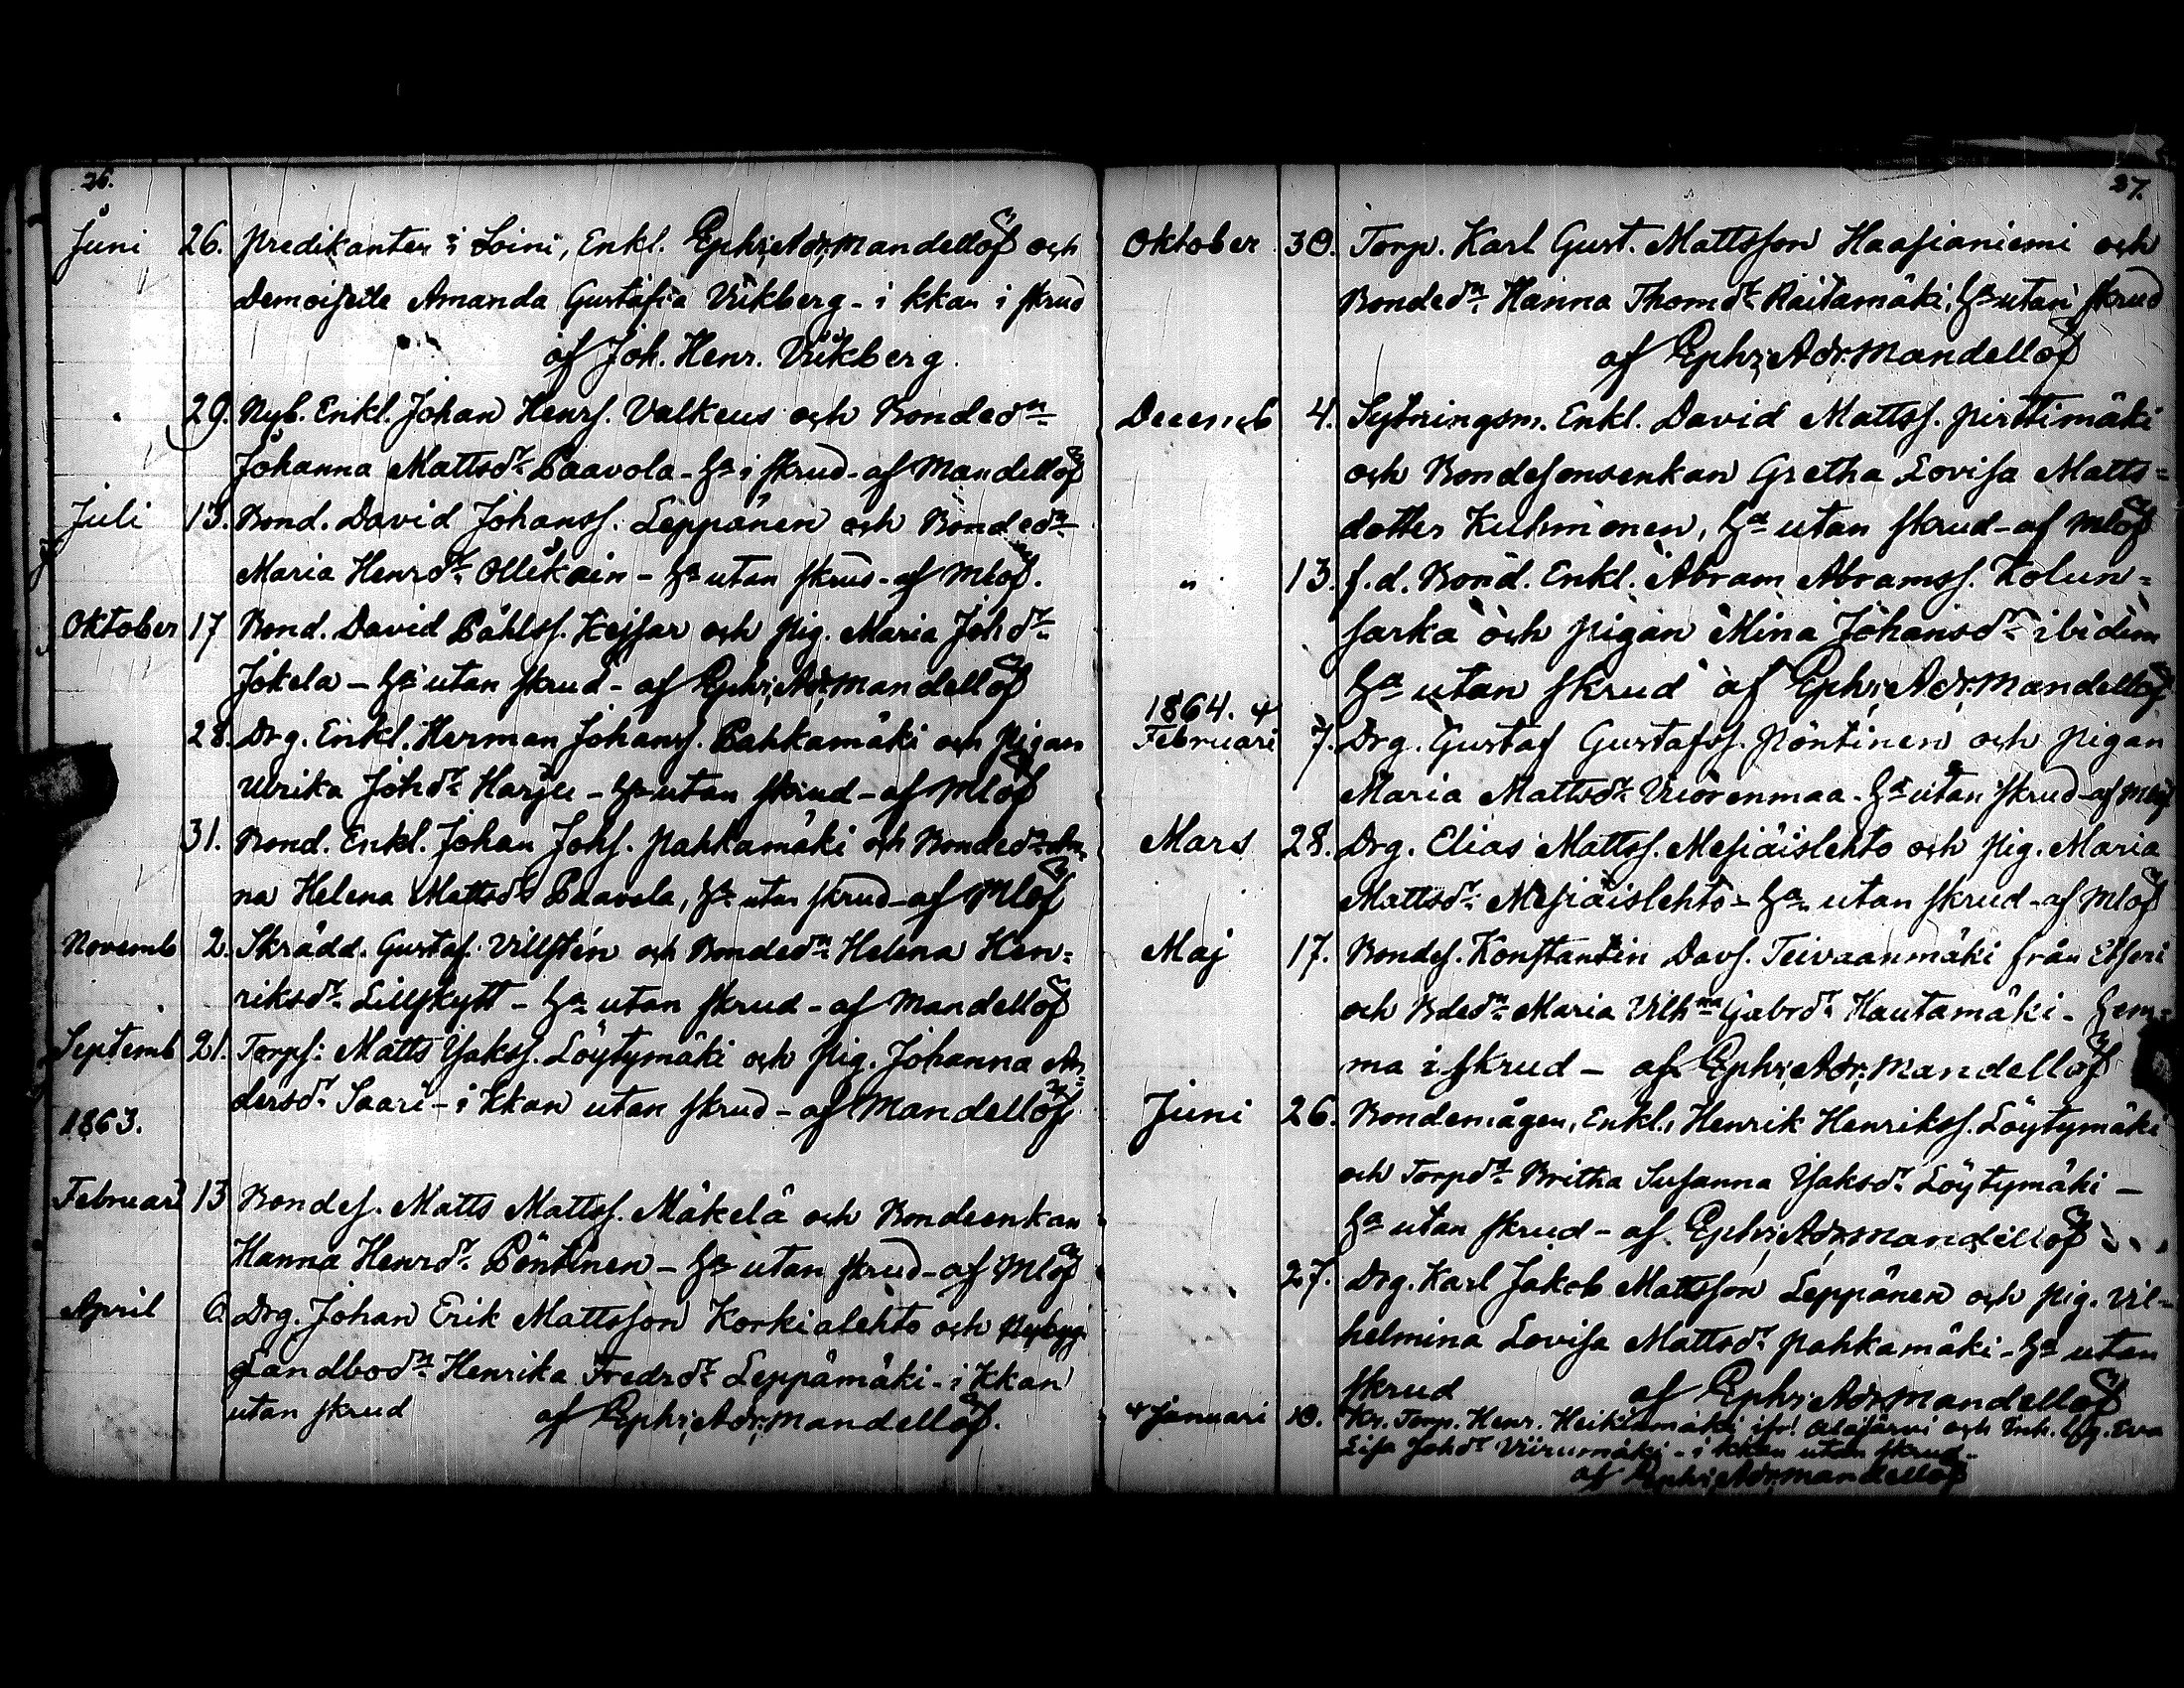 26.
Juni 26. Predikanten i Soini, Enkl. Ephr. Adr. Mandellöf och
Demoiselle Amanda Gustafia Vikberg - i kkan i skrud
af Joh. Henr. Vikberg.
" 29. Nyb. Enkl. Johan Henrs. Valkeus och Bondedn
Johanna Mattsdr. Paavola - ha i skrud - af Mandellöf
Juli 13. Bond. David Johanss. Leppänen och Bondedn
Maria Henrdr. Ollikain - ha utan skrud - af Mlöf.
Oktober 17 Bond. David Påhlss. Kejsar och pig. Maria Johdr.
Jokela - ha utan skrud - af Ephr. Adr. Mandellöf
28. Drg. Enkl. Herman Johans. Pahkamäki och pigan
Ulrika Johdr. Harju - ha utan skrud - af Mlöf
31. Bond. Enkl. Johan Johs. Pahkamäki och Bondedn. An
na Helena Mattsdr. Paavola, ha utan skrud - af Mlöf
Novemb 2. Skrädd. Gustaf. Villstén och Bondedn. Helena Hen=
riksdr. Lillskytt - ha utan skrud - af Mandellöf
Septemb 21. Torps. Matts Isakss. Löytymäki och pig. Johanna An=
dersdr. Saari - i kkan utan skrud - af Mandellöf
1863.
Februari 13 Bondes. Matts Mattss. Mäkelä och Bondeenkan
Hanna Henrdr. Pöntinen - ha utan skrud - af Mlöf
April 6. Drg. Johan Erik Mattsson Korkialehto och
Landbodn. Henrika Fredrdr. Leppämäki - i kkan
utan skrud af Ephr. Adr. Mandellöf.
27.
Oktober 30. Torp. Karl Gust. Mattsson Haasianiemi och
Bondedn. Hanna Thomdr. Raitamäki, ha utan skrud
af Ephr. Adr. Mandellöf
Decemb 4. Sytningsm. Enkl. David Mattss. Pirttimäki
och Bondesonsenkan Gretha Lovisa Matts=
dotter Kuhmonen, ha utan skrud - af Mlöf
" 13. f.d. Bond. Enkl. Abram Abramss. Kolun=
sarka och pigan Mina Johansdr. ibidem
ha utan skrud af Ephr. Adr. Mandellöf
1864.
Februari 7. Drg. Gustaf Gustafss. Pöntinen och pigan
Maria Mattsdr. Vuorenmaa - ha utan skrud - af Mlöf
Mars 28. Drg. Elias Mattss. Mesiäislehto och pig. Maria
Mattsdr. Mesiäislehto - ha utan skrud - af Mlöf
Maj 17. Bondes. Konstantin Davs. Teivaanmäki från Etseri
och Bdedn. Maria Vilhna Gabrdr. Hautamäki - hem=
ma i skrud - af Ephr. Adr. Mandellöf
Juni 26. Bondemågen, Enkl., Henrik Henrikss. Löytymäki
och Torpdr. Britha Susanna Isaksdr. Löytymäki -
ha utan skrud - af Ephr. Adr. Mandellöf
27. Drg. Karl Jakob Mattsson Leppänen och pig. Vil=
helmina Lovisa Mattsdr. Pahkamäki - ha utan
skrud af Ephr. Adr. Mandellöf
Januari 10. Kr. Torp. Henr. Heikkamäki ifr. Alajärvi och Inh. Eva
Lisa Johdr. Viirumäki - i kkan utan skrud -
af Ephr. Adr. Mandellöf